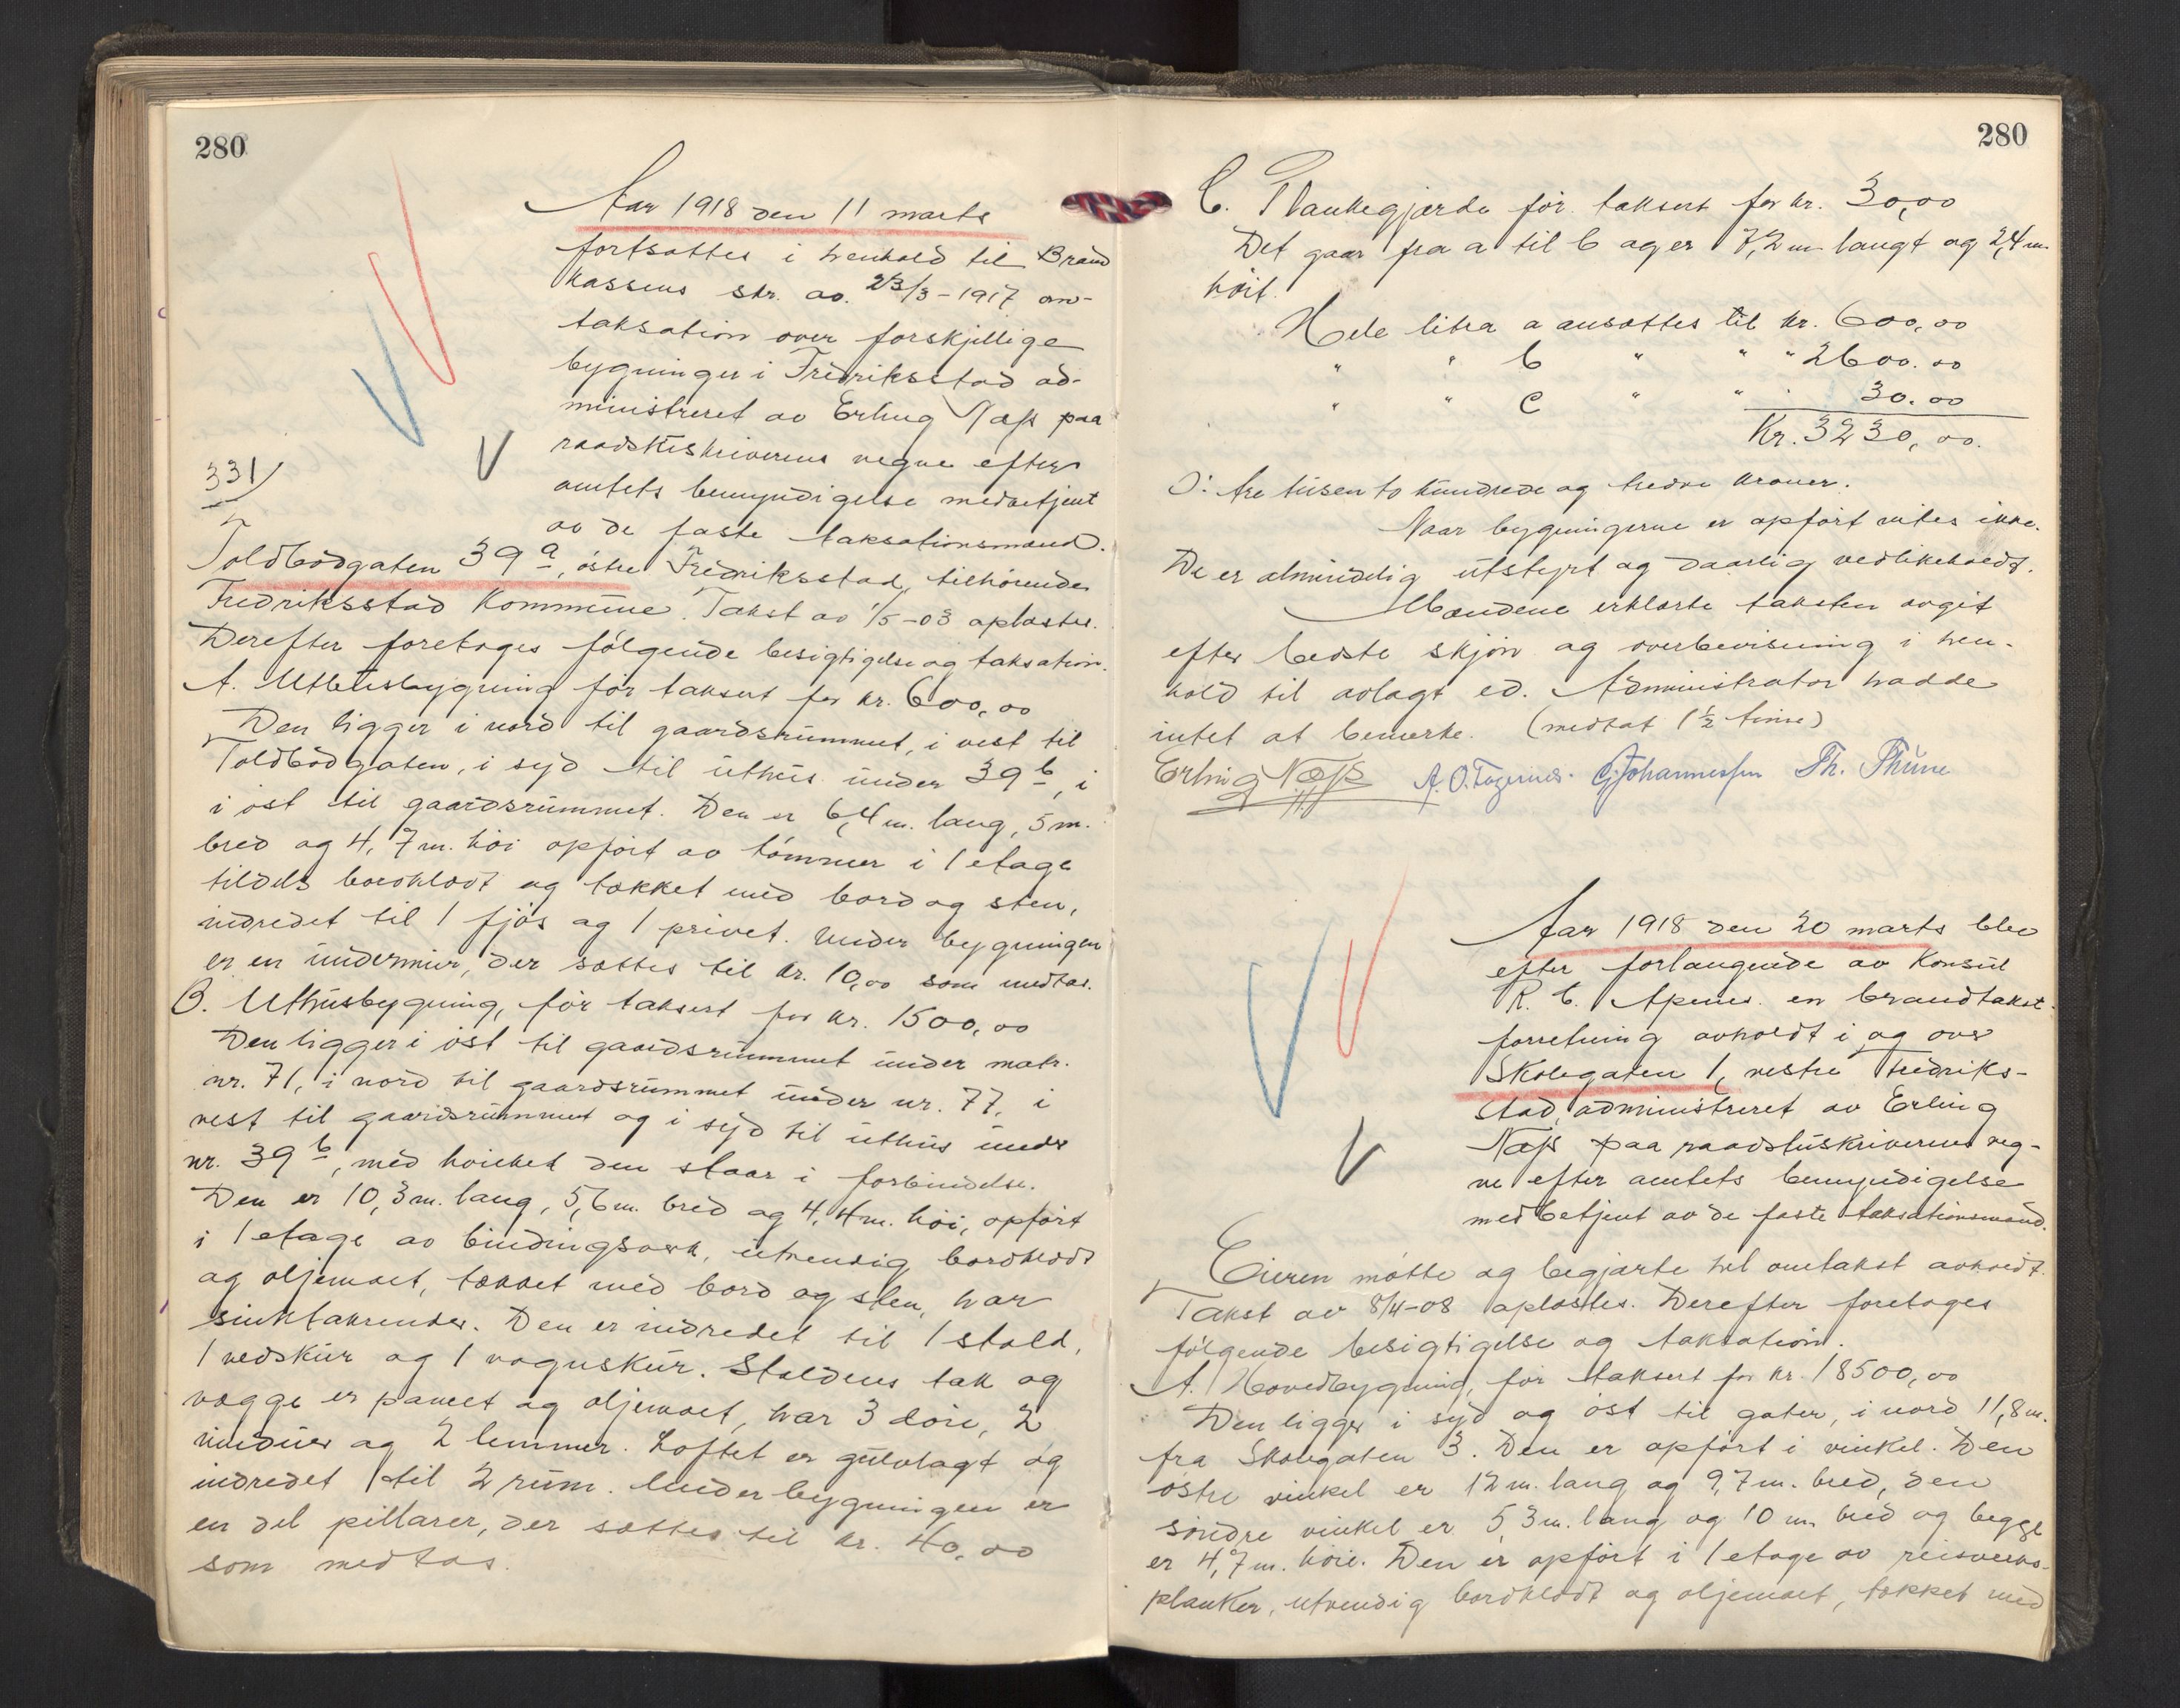 280
Aar 1918 den 11 marts
fortsattes i henhold til Brand
kassens skr. av. 23/3-1917 om-
taksation over forskjellige
bygninger i Fredriksstad ad-
ministreret av Erling Næss paa
raadstuskriverens vegne efter
amtets bemyndigelse medbetjent
av de faste taksationsmænd.
331/
Toldbodgaten 39 a, østre Fredriksstad, tilhørende
Fredriksstad Kommune. Takst av 1/5-03 oplæstes.
Derefter foretages følgende besigtigelse og taksation.
A. Uthusbygning før taksert for kr. 600,00
Den ligger i nord til gaardsrummet, i vest til
Toldbodgaten, i syd til uthus under 39 b, i
i øst til gaardsrummet. Den er 6,4 m. lang, 5 m.
bred og 4,7 m. høi opført av tømmer i 1 etage
tildels bordklædt og tækket med bord og sten,
indredet til 1 fjøs og 1 privet. Under bygningen
er en undermur, der sættes til kr. 10,00 som medtas.
B. Uthusbygning, før taksert for kr. 1500,00
Den ligger i øst til gaardsrummet under matr.
nr. 71, i nord til gaardsrummet under nr. 77, i
vest til gaardsrummet og i syd til uthus under
nr. 39 b, med hvilket den staar i forbindelse.
Den er 10,3 m. lang, 5,6 m. bred og 4,4 m. høi, opført
i 1 etage av bindingsverk, utvendig bordklædt
og oljemalt, tækket med bord og sten, har
sinktakrender. Den er indredet til 1 stald,
1 vedskur og 1 vognskur. Staldens tak og
vægge er panelt og oljemalt, har 3 døre, 2
vinduer og 2 lemmer. Loftet er gulvlagt og
indredet til 2 rum. Under bygningen er
en del pillarer, der sættes til kr. 40,00
som medtas.
280
C. Plankegjærde før taksert for kr. 30,00
Det gaar fra a til b og er 7,2 m langt og 2,4 m
høit.
Hele litra a ansættes til kr. 600,00
" " b " " " 2600.00
" " c " " 30.00
Kr. 3230,00.
ɔ: tre tusen to hundrede og tredve kroner.
Naar bygningerne er opført vites ikke.
De er almindelig utstyrt og daarlig vedlikeholdt.
Mændene erklærte taksten avgit
efter bedste skjøn og overbevisning i hen-
hold til avlagt ed. Administrator hadde
intet at bemerke. (medtat 1 1/2 time)
Erling Næss A. O. Fagernes. Johannessen Th. Thune
Aar 1918 den 20 marts blev
efter forlangende av Konsul
R. C. Apenes en brandtakst-
forretning avholdt i og over
Skolegaten 1, vestre Fredriks-
stad administreret av Erling
Næss paa raadstuskriverens veg-
ne efter amtets bemyndigelse
medbetjent av de faste taksationsmænd.
Eieren møtte og begjærte hel omtakst avholdt.
Takst av 8/4-08 oplæstes. Derefter foretages
følgende besigtigelse og taksation.
A. Hovedbygning, før taksert for kr. 18500,00
Den ligger i syd og øst til gater, i nord 11,8 m.
fra Skolegaten 3. Den er opført i vinkel. Den
østre vinkel er 12 m. lang og 9,7 m. bred, den
søndre vinkel er 5,3 m. lang og 10 m bred og begge
er 4,7 m. høie. Den er opført i 1 etage av reisverks-
planker, utvendig bordklædt og oljemalt, tækket med